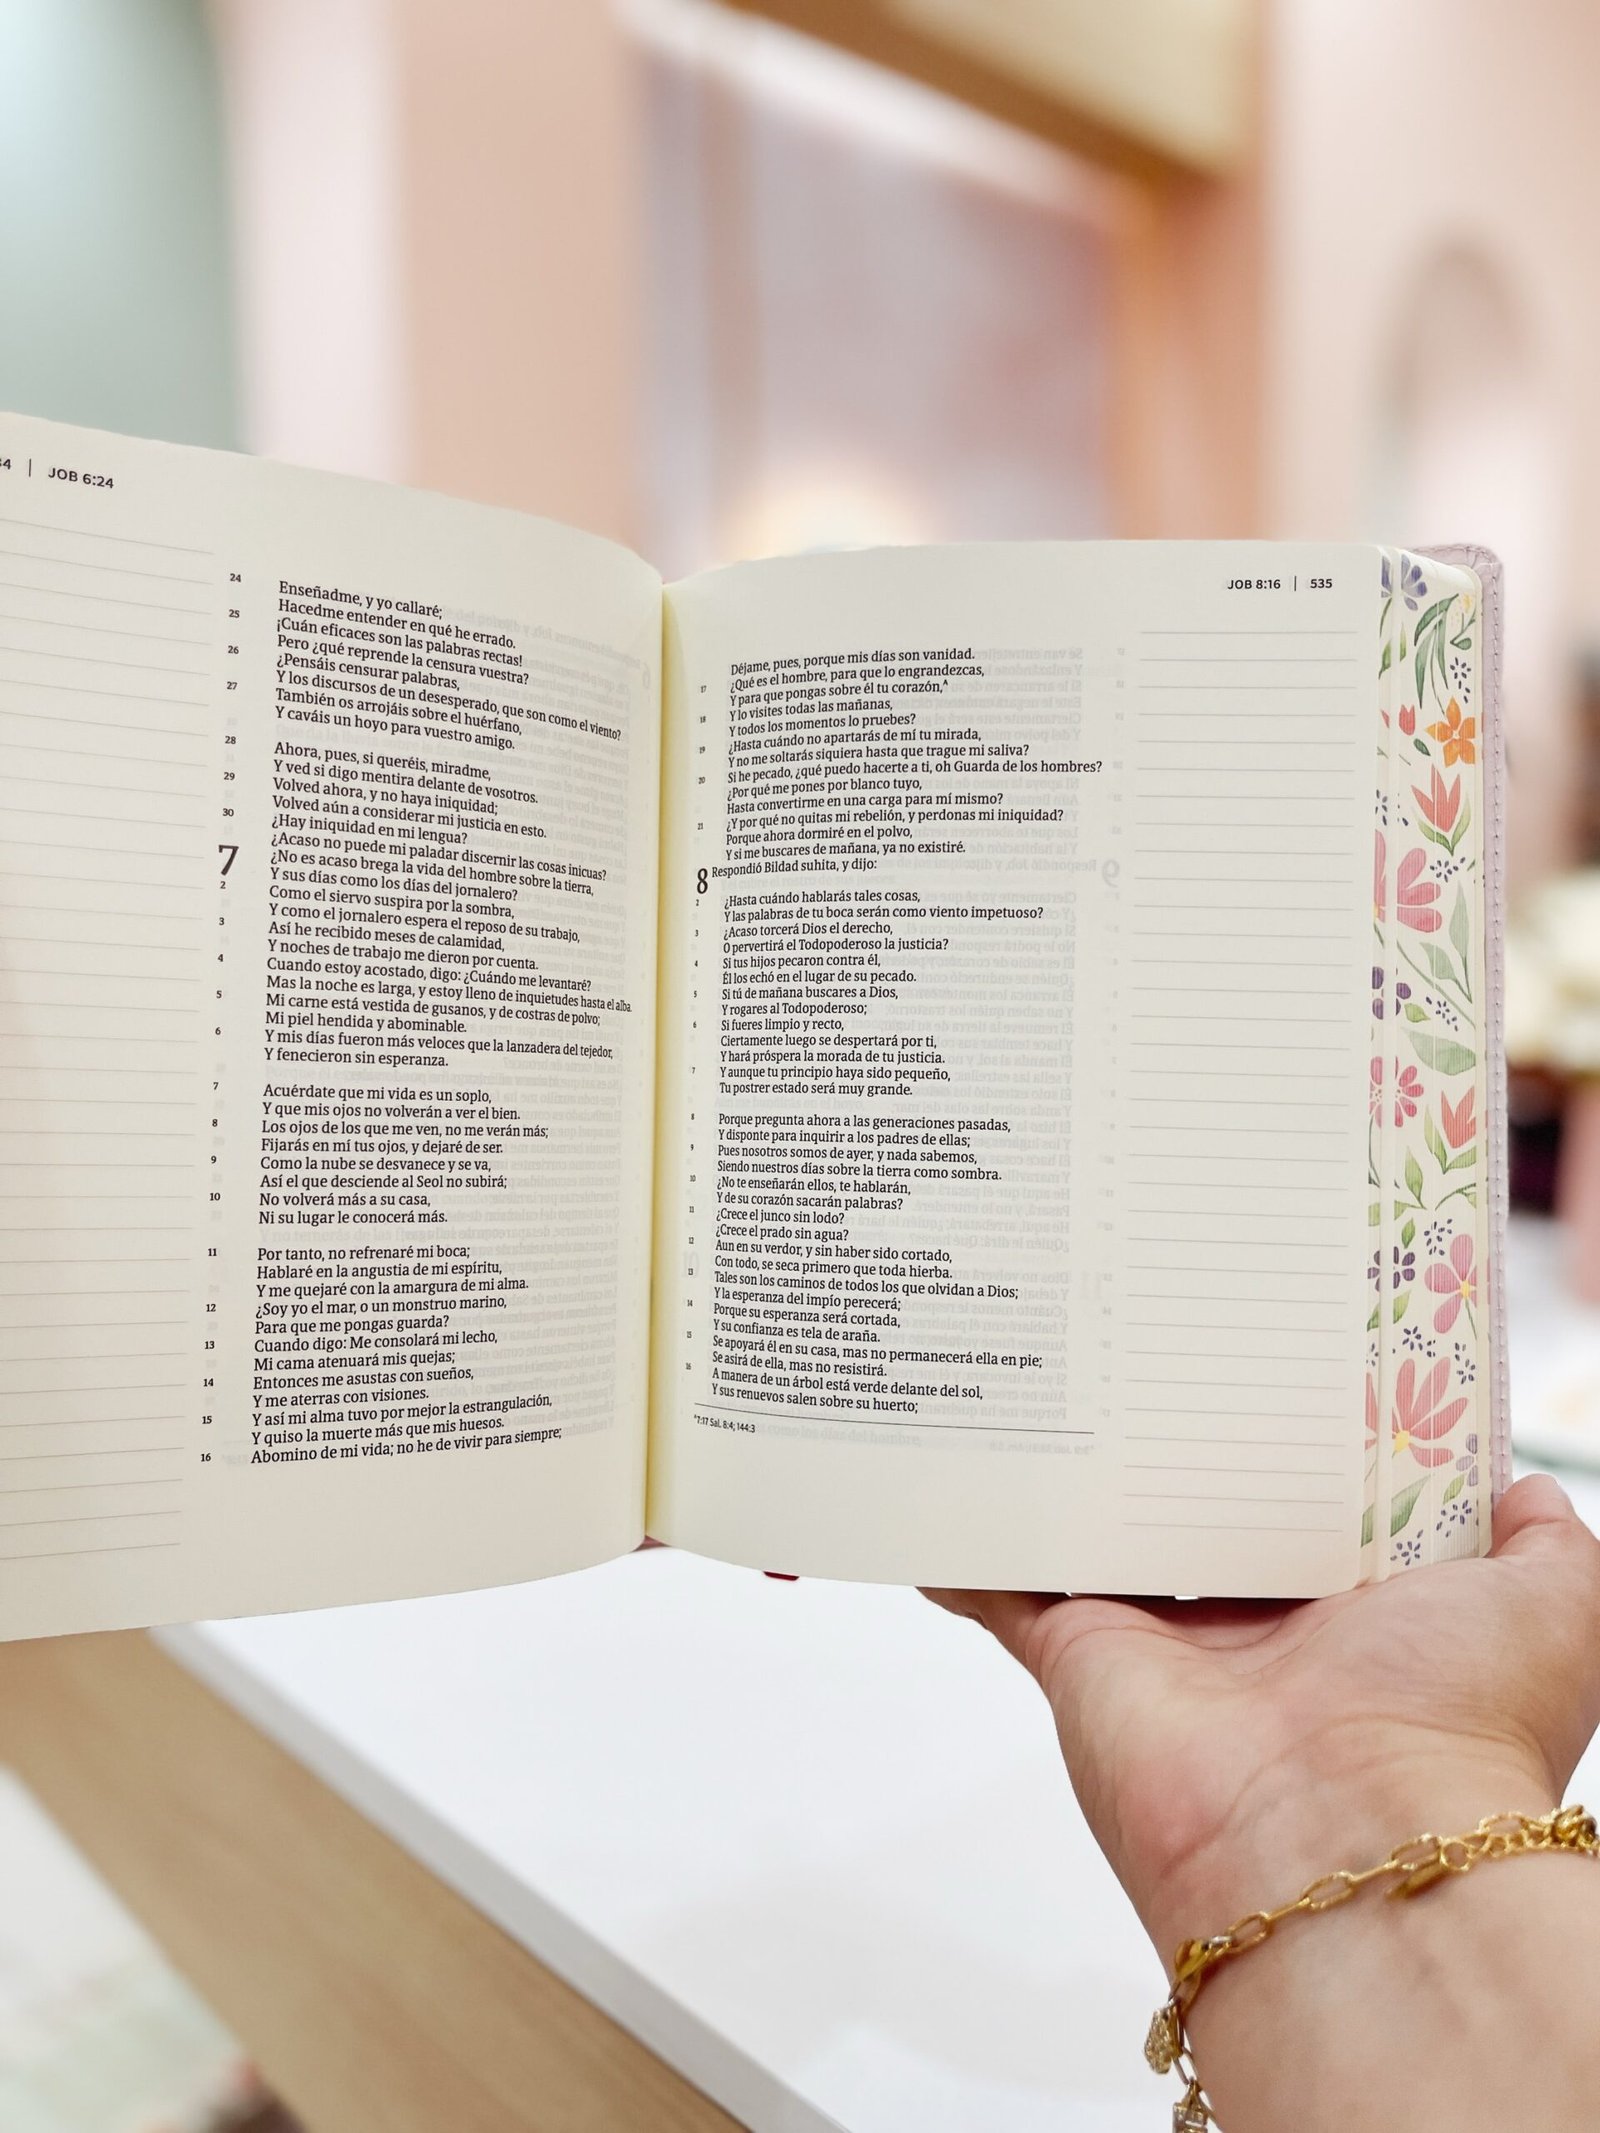 JOB 6:24
24 Enseñadme, y yo callaré;
Hacedme entender en qué he errado.
25 ¡Cuán eficaces son las palabras rectas!
Pero ¿qué reprende la censura vuestra?
26 ¿Pensáis censurar palabras,
Y los discursos de un desesperado, que son como el viento?
27 También os arrojáis sobre el huérfano,
Y caváis un hoyo para vuestro amigo.
28 Ahora, pues, si queréis, miradme,
Y ved si digo mentira delante de vosotros.
29 Volved ahora, y no haya iniquidad;
Volved aún a considerar mi justicia en esto.
30 ¿Hay iniquidad en mi lengua?
¿Acaso no puede mi paladar discernir las cosas inicuas?
7 ¿No es acaso brega la vida del hombre sobre la tierra,
Y sus días como los días del jornalero?
2 Como el siervo suspira por la sombra,
Y como el jornalero espera el reposo de su trabajo,
3 Así he recibido meses de calamidad,
Y noches de trabajo me dieron por cuenta.
4 Cuando estoy acostado, digo: ¿Cuándo me levantaré?
Mas la noche es larga, y estoy lleno de inquietudes hasta el alba.
5 Mi carne está vestida de gusanos, y de costras de polvo;
Mi piel hendida y abominable.
6 Y mis días fueron más veloces que la lanzadera del tejedor,
Y fenecieron sin esperanza.
7 Acuérdate que mi vida es un soplo,
Y que mis ojos no volverán a ver el bien.
8 Los ojos de los que me ven, no me verán más;
Fijarás en mí tus ojos, y dejaré de ser.
9 Como la nube se desvanece y se va,
Así el que desciende al Seol no subirá;
10 No volverá más a su casa,
Ni su lugar le conocerá más.
11 Por tanto, no refrenaré mi boca;
Hablaré en la angustia de mi espíritu,
Y me quejaré con la amargura de mi alma.
12 ¿Soy yo el mar, o un monstruo marino,
Para que me pongas guarda?
13 Cuando digo: Me consolará mi lecho,
Mi cama atenuará mis quejas;
14 Entonces me asustas con sueños,
Y me aterras con visiones.
15 Y así mi alma tuvo por mejor la estrangulación,
Y quiso la muerte más que mis huesos.
16 Abomino de mi vida; no he de vivir para siempre;
JOB 8:16 | 535
Déjame, pues, porque mis días son vanidad.
17 ¿Qué es el hombre, para que lo engrandezcas,
Y para que pongas sobre él tu corazón,A
18 Y lo visites todas las mañanas,
Y todos los momentos lo pruebes?
19 ¿Hasta cuándo no apartarás de mí tu mirada,
Y no me soltarás siquiera hasta que trague mi saliva?
20 Si he pecado, ¿qué puedo hacerte a ti, oh Guarda de los hombres?
¿Por qué me pones por blanco tuyo,
Hasta convertirme en una carga para mí mismo?
21 ¿Y por qué no quitas mi rebelión, y perdonas mi iniquidad?
Porque ahora dormiré en el polvo,
Y si me buscares de mañana, ya no existiré.
8 Respondió Bildad suhita, y dijo:
2 ¿Hasta cuándo hablarás tales cosas,
Y las palabras de tu boca serán como viento impetuoso?
3 ¿Acaso torcerá Dios el derecho,
O pervertirá el Todopoderoso la justicia?
4 Si tus hijos pecaron contra él,
Él los echó en el lugar de su pecado.
5 Si tú de mañana buscares a Dios,
Y rogares al Todopoderoso;
6 Si fueres limpio y recto,
Ciertamente luego se despertará por ti,
Y hará próspera la morada de tu justicia.
7 Y aunque tu principio haya sido pequeño,
Tu postrer estado será muy grande.
8 Porque pregunta ahora a las generaciones pasadas,
Y disponte para inquirir a los padres de ellas;
9 Pues nosotros somos de ayer, y nada sabemos,
Siendo nuestros días sobre la tierra como sombra.
10 ¿No te enseñarán ellos, te hablarán,
Y de su corazón sacarán palabras?
11 ¿Crece el junco sin lodo?
¿Crece el prado sin agua?
12 Aun en su verdor, y sin haber sido cortado,
Con todo, se seca primero que toda hierba.
13 Tales son los caminos de todos los que olvidan a Dios;
Y la esperanza del impío perecerá;
14 Porque su esperanza será cortada,
Y su confianza es tela de araña.
15 Se apoyará él en su casa, mas no permanecerá ella en pie;
Se asirá de ella, mas no resistirá.
16 A manera de un árbol está verde delante del sol,
Y sus renuevos salen sobre su huerto;
A 7:17 Sal. 8:4; 144:3